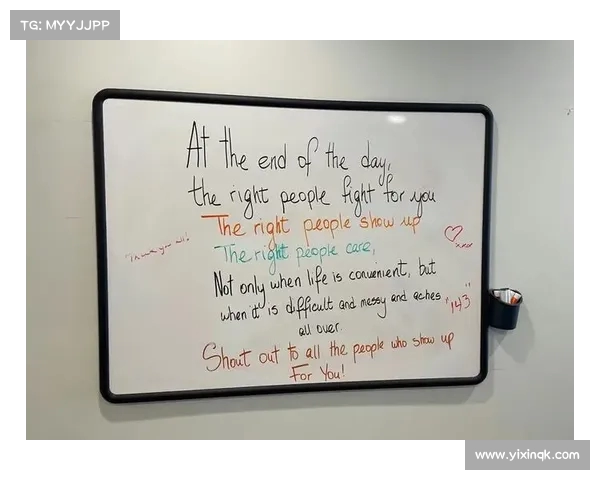 TG: MYYJJPP
At the end of the day,
the right people fight for you
The right people show up
The right people care,
Thank you all!
xxoo
Not only when life is convenient, but
when it is difficult and messy and aches
"143"
all over.
Shout out to all the people who show up
For You!
www.yixinqk.com